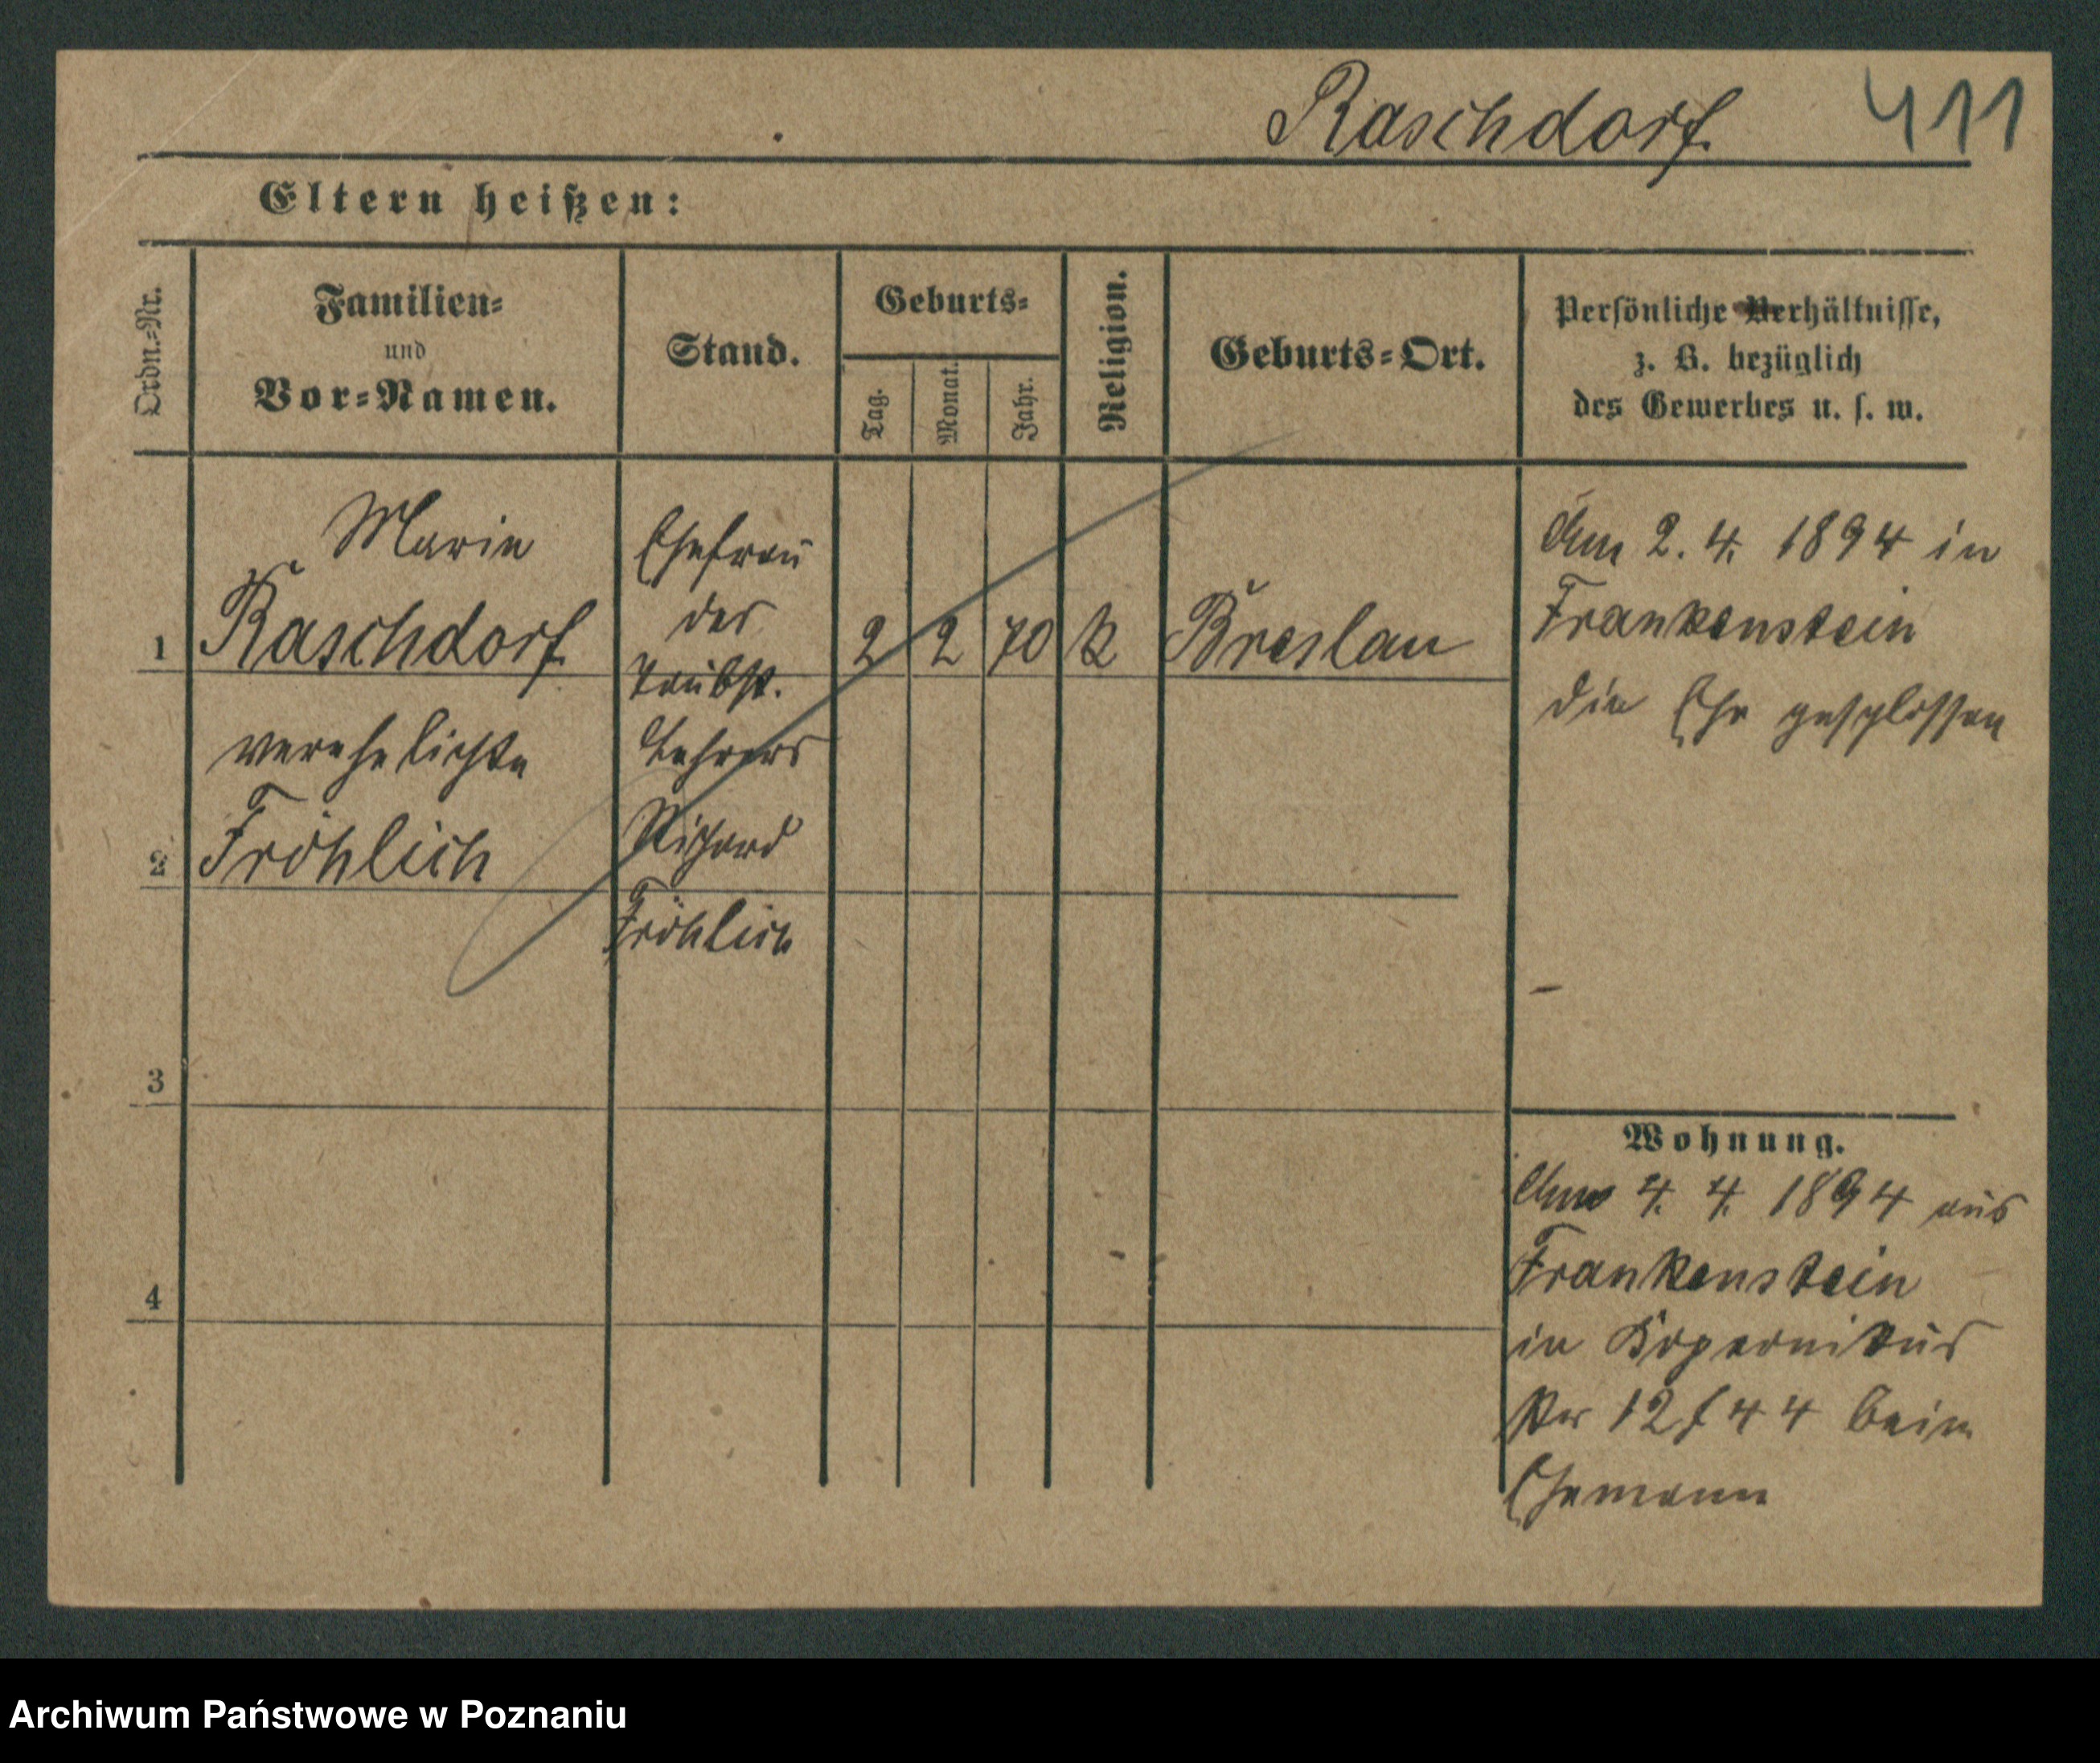 Raschdorf. 411
Eltern heißen:
Ordn.=Nr.
Familien=
und
Vor=Namen.
Stand.
Geburts=
Tag.
Monat.
Jahr.
Religion.
Geburts=Ort.
Persönliche Verhältnisse,
z. B. bezüglich
des Gewerbes u. s. w.
1
Marie
Raschdorf
verehelichte
2
Fröhlich
Ehefrau
des
Taubst.
Lehrers
Richard
Fröhlich
2 2 70 k Breslau
Am 2. 4. 1894 in
Frankenstein
die Ehe geschlossen
3
4
Wohnung.
Am 4. 4. 1894 aus
Frankenstein
in Kopernikus
12 / 44 beim
Ehemann
Archiwum Państwowe w Poznaniu